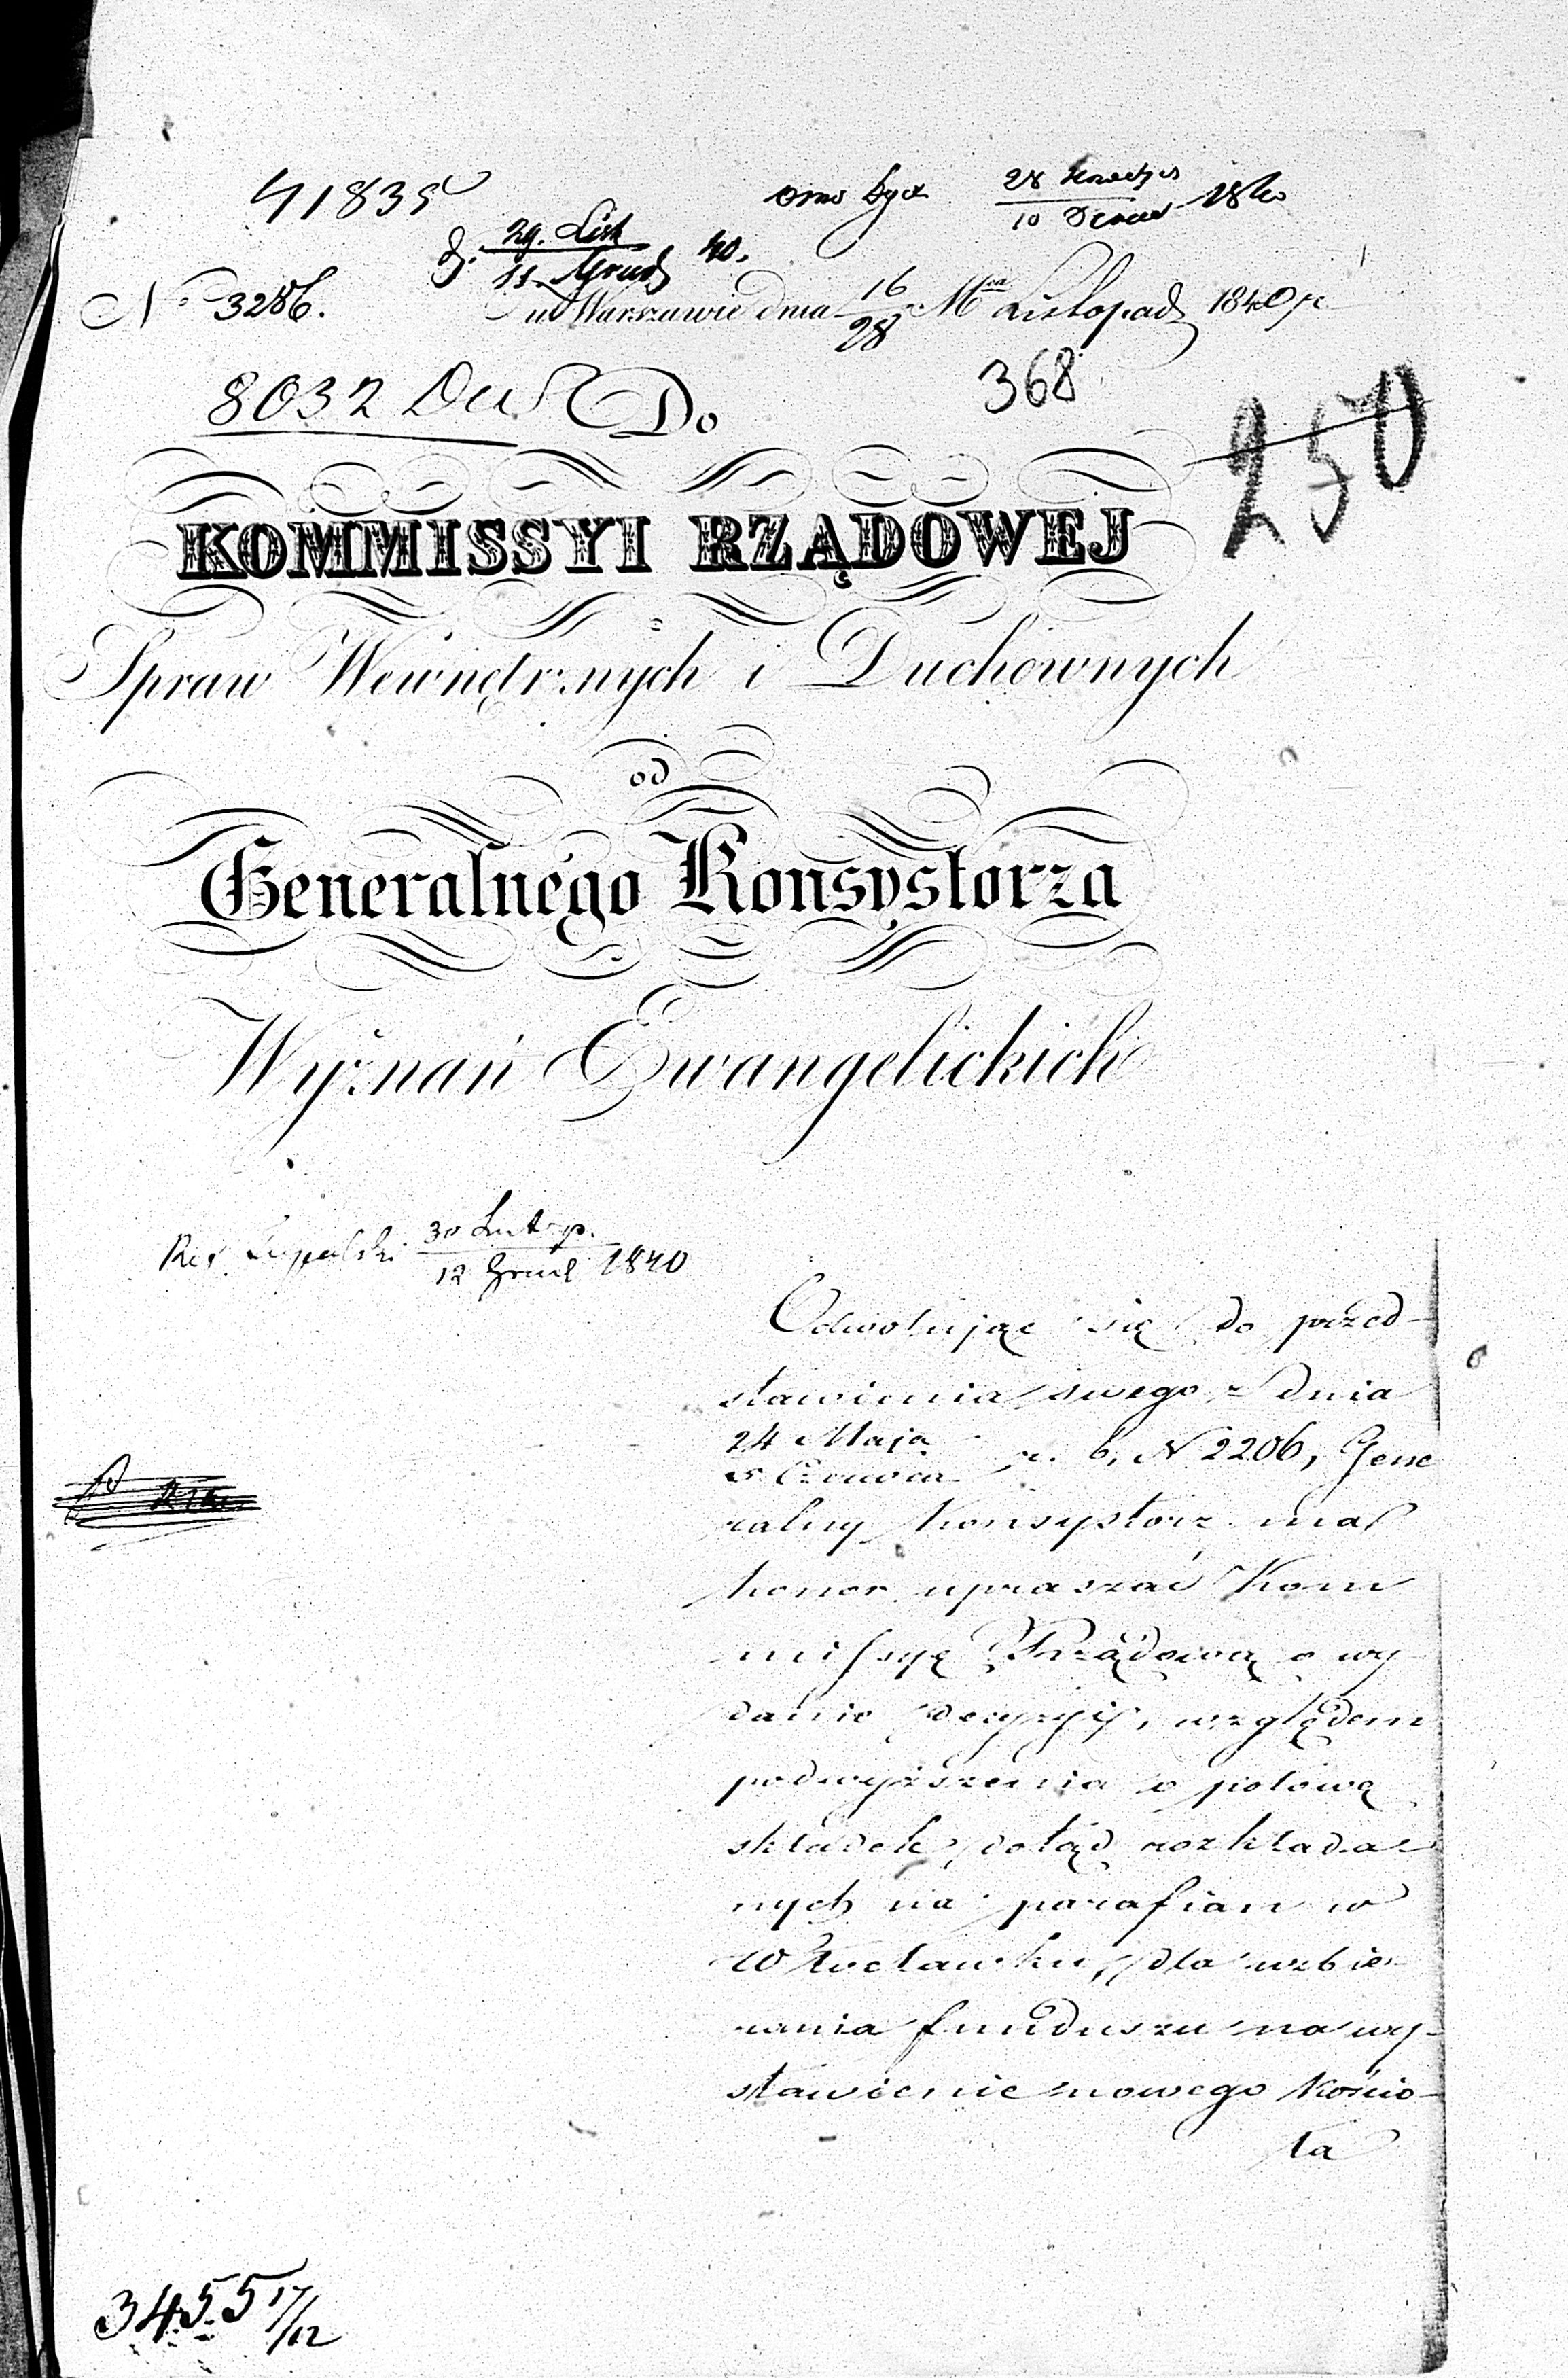 41835
28
10 1840
29. List
11. Grud 40.
No 3286.
w Warszawie dnia 16/28 Mca Listopada 1840 r.
8032
Do
368
250
KOMMISSYI RZĄDOWEJ
Spraw Wewnętrznych i Duchownych
od
Generalnego Konsystorza
Wyznań Ewangelickich
30
12 Grud 1840
Odwołując się do przed-
stawienia swego z dnia
24 Maja
5 Czerwca r. b. N 2206, Gene
ralny Konsystorz ma
honor upraszać Kom
missyę Rządową o wy
danie decyzyi, względem
podwyższenia o połowę
składek, dotąd rozkłada-
nych na parafian w
Włocławku, dla uzbie-
rania funduszu na wy-
stawienie nowego kościo-
ła
3455 17/12